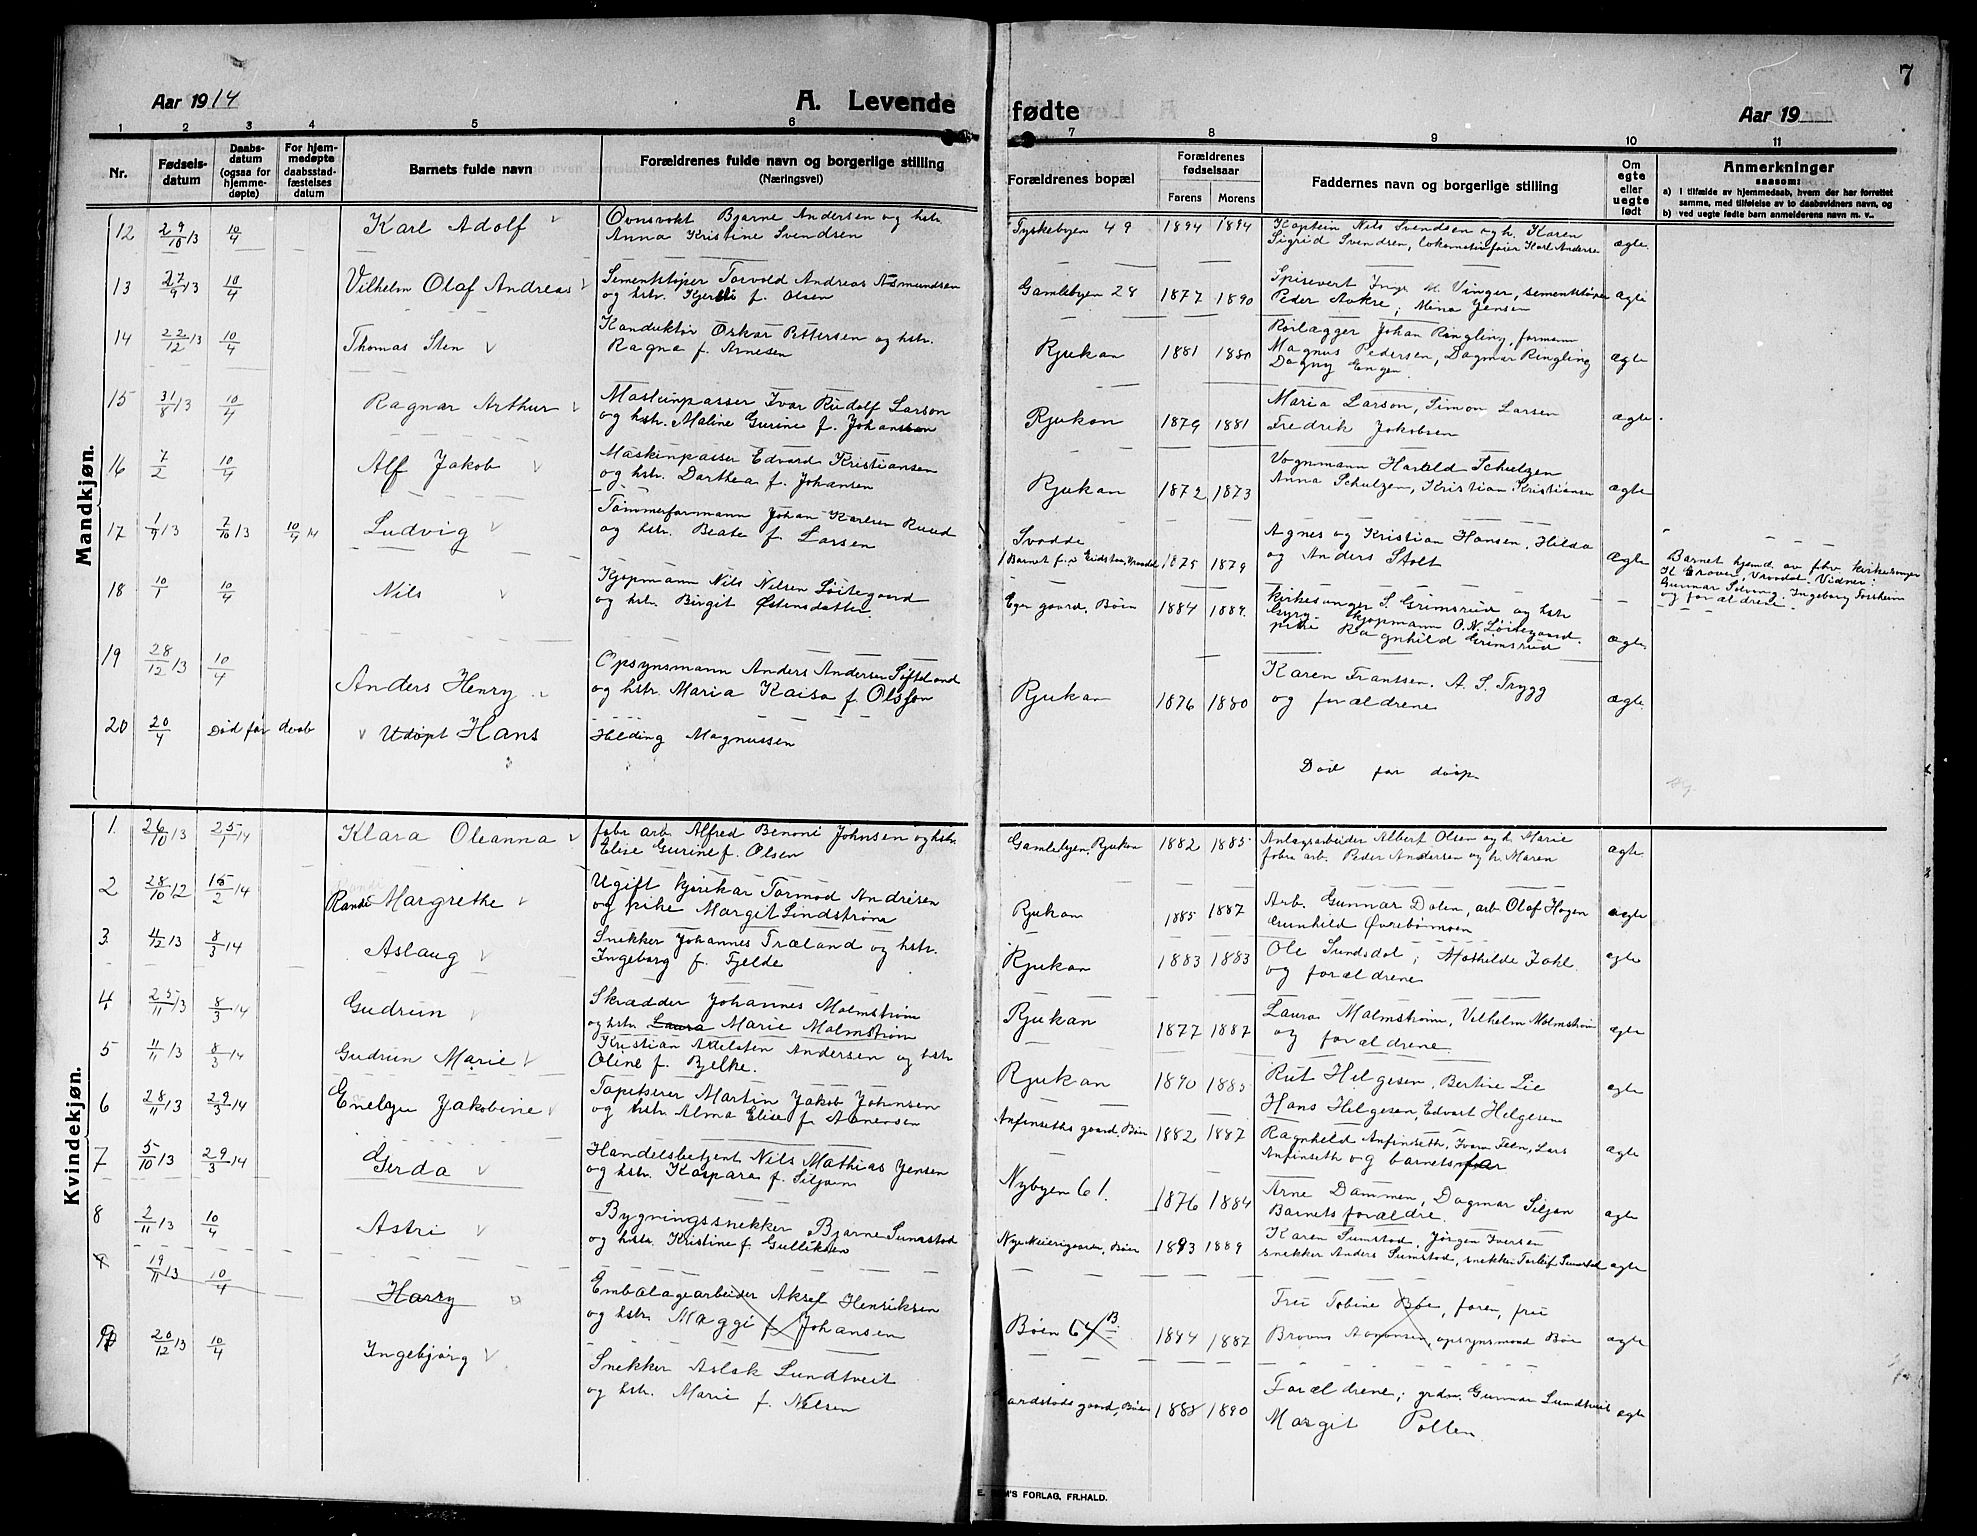 7
Aar 1914
A. Levende
fødte
Aar 19
1 2 3 4 5 6 7 8 9 10 11
Nr.
Fødsels-
datum
Daabs-
datum
(ogsaa for
hjemme-
døpte)
For hjem-
medøpte
daabsstad-
fæstelses
datum
Barnets fulde navn
Forældrenes fulde navn og borgerlige stilling
(Næringsvei)
Forældrenes bopæl
Forældrenes
fødselsaar
Farens Morens
Faddernes navn og borgerlige stilling
Om
egte
eller
uegte
født
Anmerkninger
saasom:
a) I tilfælde av hjemmedaab, hvem der har forrettet
samme, med tilføielse av to daabsvidners navn, og
b) ved uegte fødte barn anmelderens navn m. v..
Mandkjøn.
12 29/10 13 10/4 Karl Adolf Ovnsvakt Bjarne Andersen og hstr. Tyskebyen 49 1894 1894 Kaptein Nils Svendsen og h. Karen
Anna Kristine Svendsen Sigrid Svendsen, lokomotivfører Karl Anderse ægte.
13 27/9 13 10/4 Vilhelm Olaf Andreas Sementstøper Torvald Andreas Asmundsen Gamlebyen 28 1877 1890 Spisevert Inga M. Vinger, sementstøper ægte
og hstr. f. Olsen Peder Aakre, Mina Jensen
14 22/12 13 10/4 Thomas Sten Konduktør Oskar Pettersen og hstr. Rjukan 1881 1880 Rørlægger Johan Ringling, formann
Ragna f. Arnesen Magnus Pedersen, Dagmar Ringling ægte
Dagny Engen
15 31/8 13 10/4 Ragnar Arthur Maskinpasser Ivar Rudolf Larson Rjukan 1879 1881 Maria Larson, Simon Larsen ægte
og hstr. Maline Gurine f. Johansson Fredrik Jakobsen
16 7/2 10/4 Alf Jakob Maskinpasser Edvard Kristiansen Rjukan 1872 1873 Vognmann Harald Schulzen
og hstr. Dorthea f. Johansen Anna Schulzen, Kristian Kristiansen ægte
17 1/9 13 7/10 13 10/4 14 Ludvig Tømmerformann Johan Karlsen Ruud Svadde Agnes og Kristian Hansen, Hilda
og hstr. Beate f. Larsen 1875 1879 og Anders Stolt ægte Barnet hjemd. av fhv. kirkesanger
K Groven, Vraadal. Vidner:
Gunnar Solvang, Ingeborg Forsheim
og forældrene.
18 10/1 10/4 Nils Kjøpmann Nils Nilsen Løitegaard Eger gaard, Bøen 1884 1889. kirkesanger S. Grimsrud og hstr
og hstr. Birgit Østensdatter Gyry kjøpmann O. N. Løitegaard.
pike Ragnhild Grimsrud ægte
19 28/12 13 10/4 Anders Henry Opsynsmann Anders Andersen Søfteland Rjukan 1876 1880 Karen Frantsen, A. S. Trygg
og hstr. Maria Kaisa f. Olsson og forældrene ægte
20 20/4 Død før daab Udøpt Hans Hilding Magnussen
Død før daap
Kvindekjøn.
1. 26/10 13 25/1 14 Klara Oleanna fabr arb. Alfred Benoni Johnsen og hstr. Gamlebyen, Rjukan 1882 1885 Anlægsarbeider Albert Olsen og h. Marie
Elise Gurine f. Olsen fabr arb. Peder Andersen og h. Maren ægte
2 28/10 12 15/2 14 Randi Margrethe Ugift kjørekar Tormod Andrisen Rjukan 1885 1887 Arb. Gunnar Dalen, arb. Olaf Hagen ægte
og pike Margit Lindstrøm Gunhild Øvrebømoen
3. 4/12 13 8/3 14 Aslaug Snekker Johannes Træland og hstr. Rjukan 1883 1883 Ole Sundsdal, Mathilde Zahl ægte
Ingeborg f. Fjelde og forældrene
4 25/11 13 8/3 14 Gudrun Skrædder Johannes Malmstrøm Rjukan 1877 1887 Laura Malmstrøm, Vilhelm Malmstrøm
og hstr. Laura Marie Malmstrøm og forældrene. ægte
5 4/11 13 8/3 14 Gudrun Marie Kristian Adelsten Andersen og hstr Rjukan 1890 1885 Rut Helgesen, Bertine Lie ægte
Oline f. Bjelke. Hans Helgesen, Edvart Helgesen
6 28/11 13 29/3 14 Enelyn Jakobine Tapetserer Martin Jakob Johnsen Anfinseths gaard, Bøen 1882 1887 Ragnhild Anfinseth, Ivar Teen, Lars
og hstr. Alma Elise f. Anfinseth og barnets far ægte
7 5/10 13 29/3 14 Gerda Handelsbetjent Nils Mathias Jensen Nybyen 61. 1876 1884 Arne Dammen, Dagmar Siljan
og hstr. Kaspara f. Siljan Barnets forældre. ægte
8 2/11 13 10/4 Astri Bygningssnekker Bjarne Sumstad Nye Meierigaarden, Bøen 1893 1889 Karen Sumstad, Jørgen Iversen
og hstr. Kristine f. Gulliksen snekker Anders Sumstad, snekker Torleif Sumstad ægte
9 19/11 13 10/4 Harry Embalagearbeider Aksel Henriksen Bøen 64 B. 1884 1887 Fru Tobine Bøe, foren, fru
og hstr. Maggi f. Johansen opsynsmand Bøe ægte
9 20/12 13 10/4 Ingebjørg Snekker Aslak Lundtveit 1888 1890 Forældrene, grdm. Gunnar Lundtveit ægte
og hstr. Marie f. Nelsen Margit Pollen
FORLAG, FR.HALD.